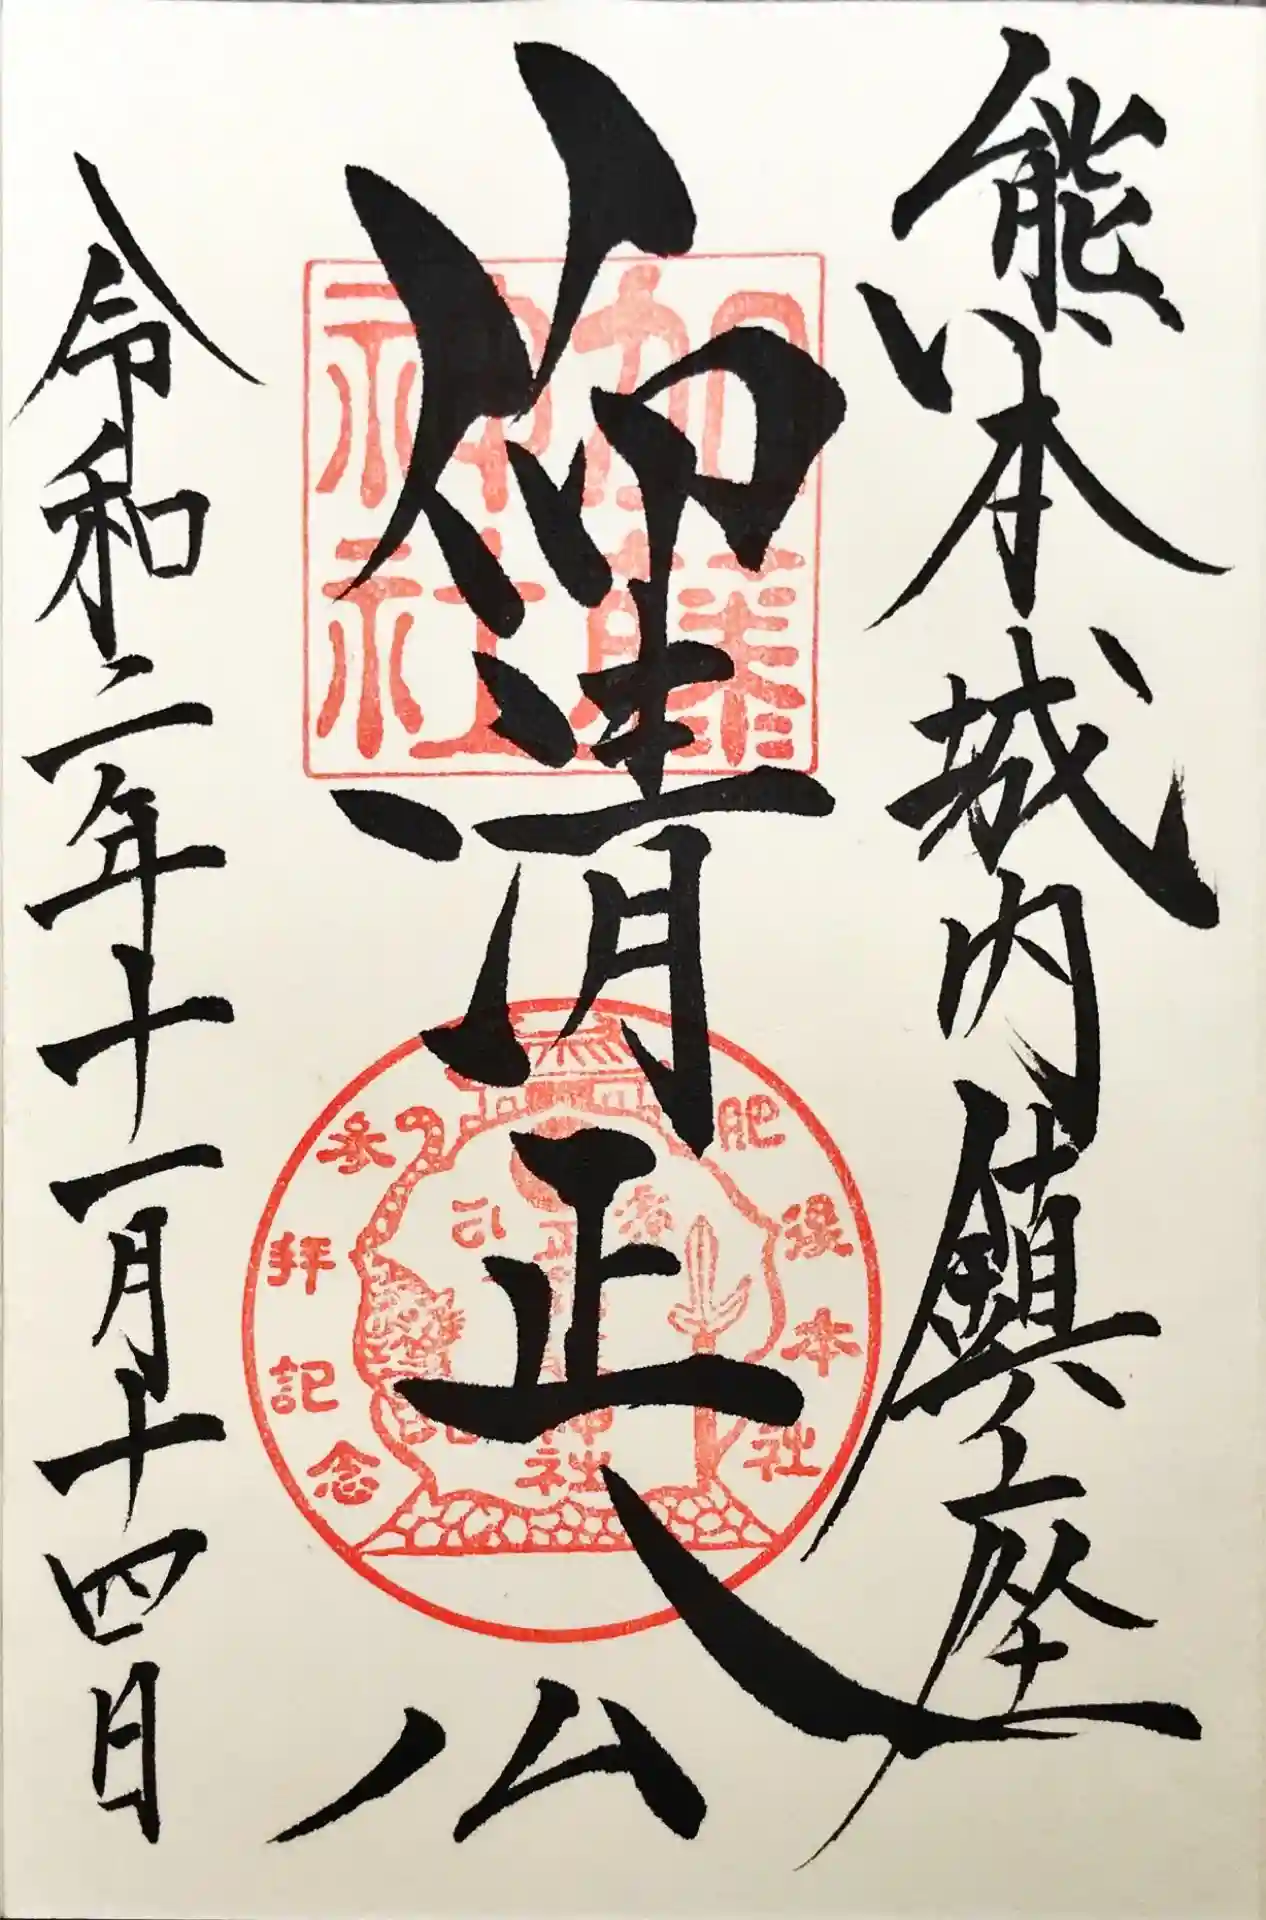 熊本城内鎮座
仰清正公
令和二年十一月十四日
加藤
神社
肥後本社
参拝記念